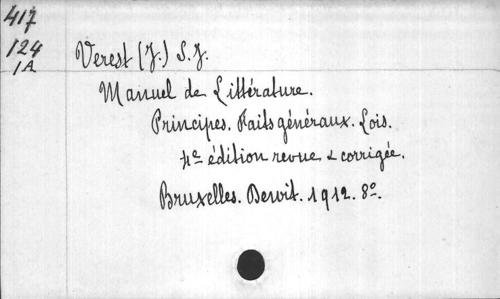 417
124
1A
Verest (J.) S.J.
Manuel de Littérature.
Principes. Faits généraux. Lois.
4e édition revue & corrigée.
Bruxelles. Dewit. 1912. 8o.